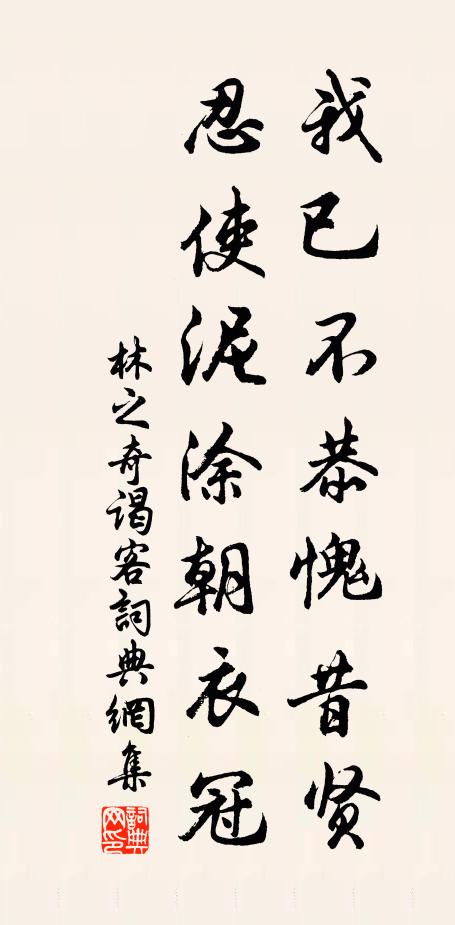 我已不恭愧昔贤
忍使泥涂朝衣冠
林之奇谒客詞典網集
詞典网印